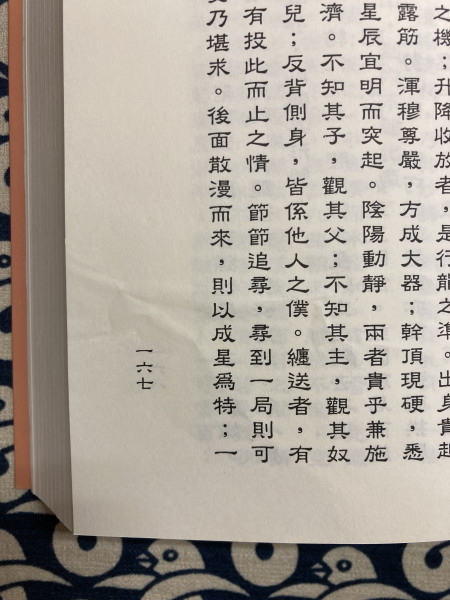 之機；升降收放者，是行龍之準。出身貴起
露筋。渾穆尊嚴，方成大器；幹頂現硬，悉
星辰宜明而突起。陰陽動靜，兩者貴乎兼施
濟。不知其子，觀其父；不知其主，觀其奴
兒；反背側身，皆係他人之僕。纏送者，有
有投此而止之情。節節追尋，尋到一局則可
乃堪求。後面散漫而來，則以成星爲特；一
一六七